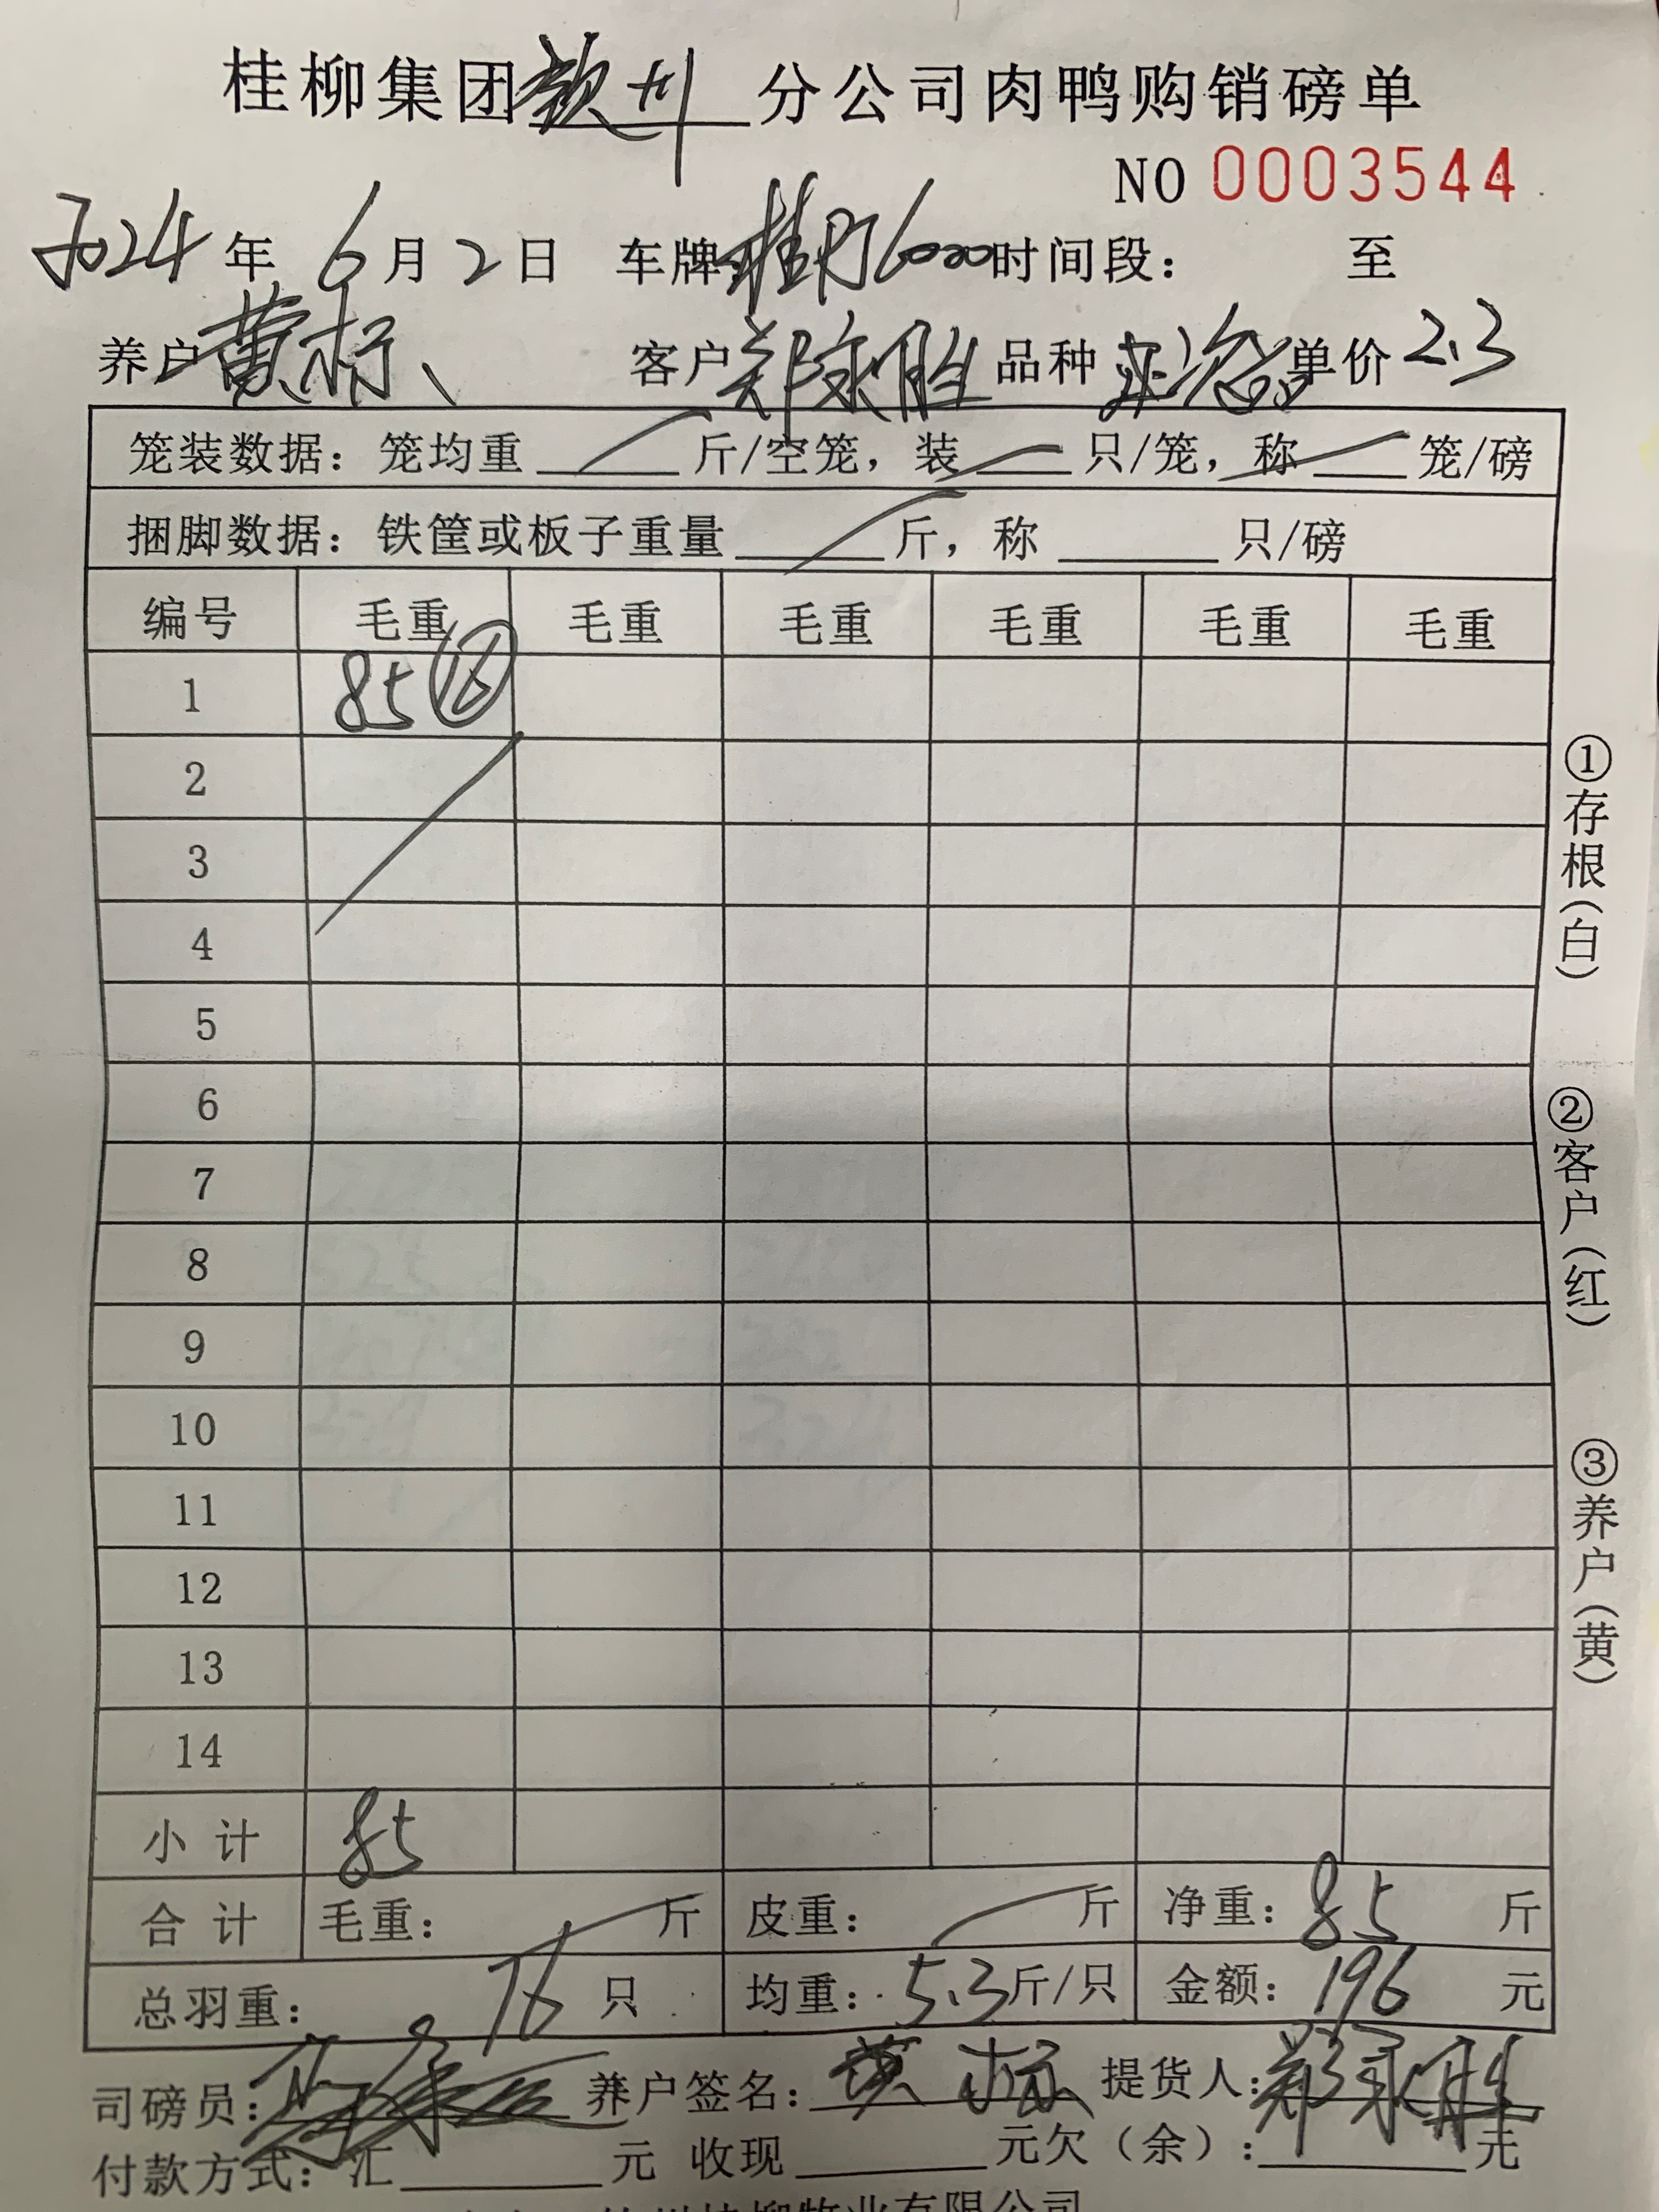 桂柳集团钦州分公司肉鸭购销磅单
NO 0003544
2024年6月2日 车牌 时间段： 至
养户黄标 客户郑永胜 品种 单价2.3
笼装数据：笼均重 斤/空笼，装 只/笼，称 笼/磅
捆脚数据：铁筐或板子重量 斤，称 只/磅
编号 毛重 毛重 毛重 毛重 毛重 毛重
1 85 ⑯
2
3
4
5
6
7
8
9
10
11
12
13
14
小计 85
合计 毛重： 斤 皮重： 斤 净重：85斤
总羽重：16只 均重：5.3斤/只 金额：196元
司磅员： 养户签名：黄标 提货人：郑永胜
付款方式：汇 元 收现 元欠（余）： 元
①存根（白）
②客户（红）
③养户（黄）